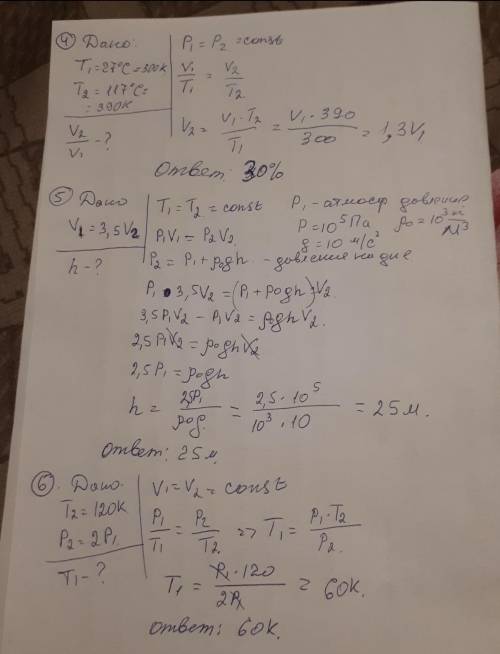 ④ Дано:
T₁=27°C=300K
T₂=117°C=
=390K
V₂/V₁ - ?
P₁ = P₂ = const
V₁/T₁ = V₂/T₂
V₂ = V₁·T₂/T₁ = V₁·390/300 = 1,3V₁
Ответ: 30%
⑤ Дано
V₁=3,5V₂
h - ?
T₁ = T₂ = const
P₁V₁ = P₂V₂
P₂ = P₁+ρ₀gh - давление на дне
P₁ - атмосф давление
P=10⁵Па
g=10 м/с²
P₁·3,5V₂ = (P₁+ρ₀gh)·V₂
3,5P₁V₂ - P₁V₂ = ρ₀ghV₂.
2,5P₁V₂ = ρ₀ghV₂
2,5P₁ = ρ₀gh
h = 2,5P₁/ρ₀g = 2,5·10⁵/10³·10 = 25м.
Ответ: 25м
⑥ Дано
T₂=120K
P₂=2P₁
T₁ - ?
V₁=V₂ = const
P₁/T₁ = P₂/T₂ => T₁ = P₁·T₂/P₂
T₁ = P₁·120/2P₁ = 60K.
Ответ: 60K.